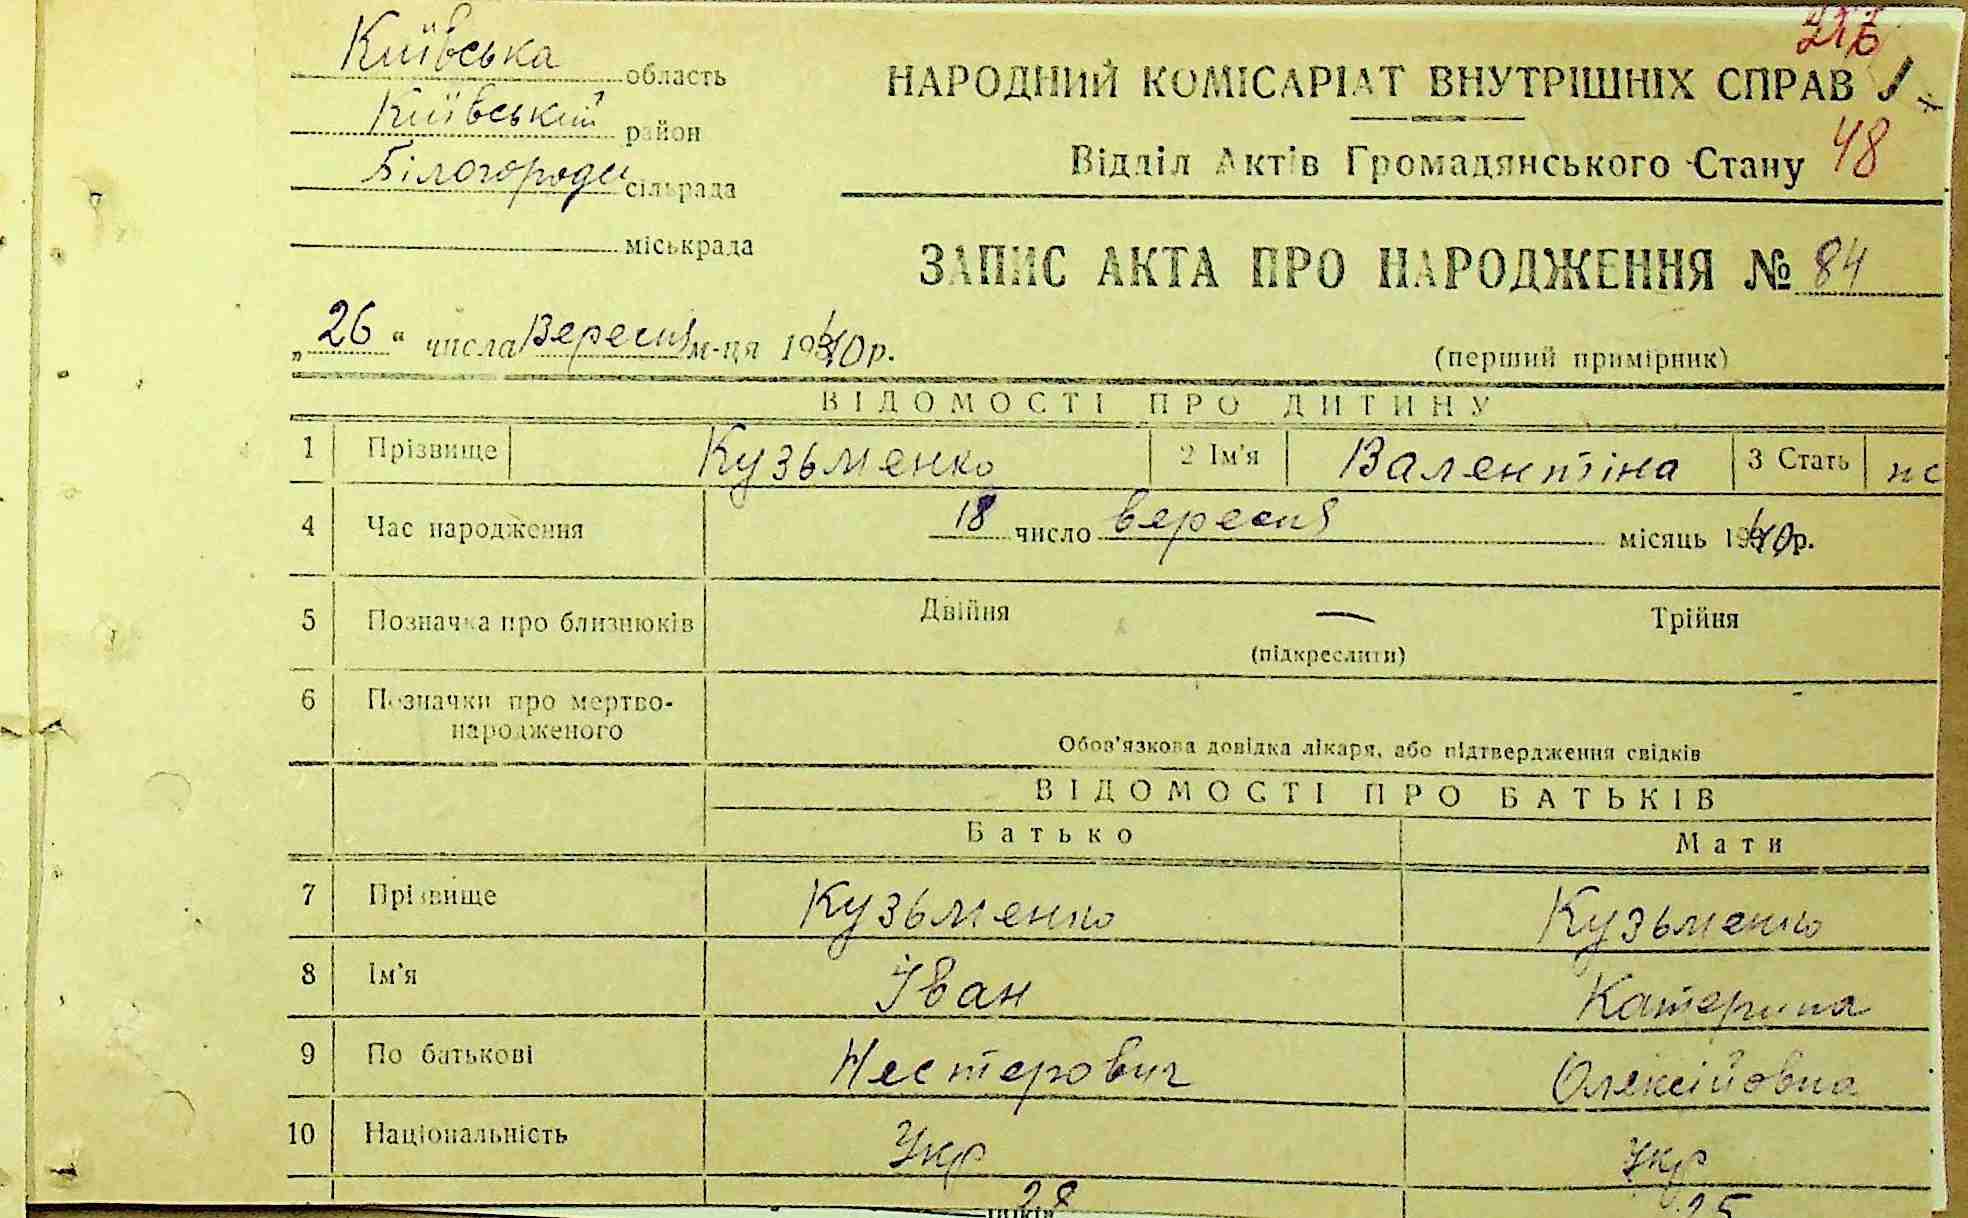 Київська область
Київський район
Білогородс сільрада
міськрада
НАРОДНИЙ КОМІСАРІАТ ВНУТРІШНІХ СПРАВ
48
Відділ Актів Громадянського Стану
ЗАПИС АКТА ПРО НАРОДЖЕННЯ № 84
„26“ числа Вересня м-ця 1940 р.
(перший примірник)
ВІДОМОСТІ ПРО ДИТИНУ
1 Прізвище Кузьменко 2 Ім'я Валентіна 3 Стать
4 Час народження 18 число вересня місяць 1940 р.
5 Позначка про близнюків Двійня — Трійня
(підкреслити)
6 Позначки про мертво-
народженого
Обов'язкова довідка лікаря, або підтвердження свідків
ВІДОМОСТІ ПРО БАТЬКІВ
Батько Мати
7 Прізвище Кузьменко Кузьменко
8 Ім'я Іван Катерина
9 По батькові Нестерович Олексійовна
10 Національність Укр Укр
28 25